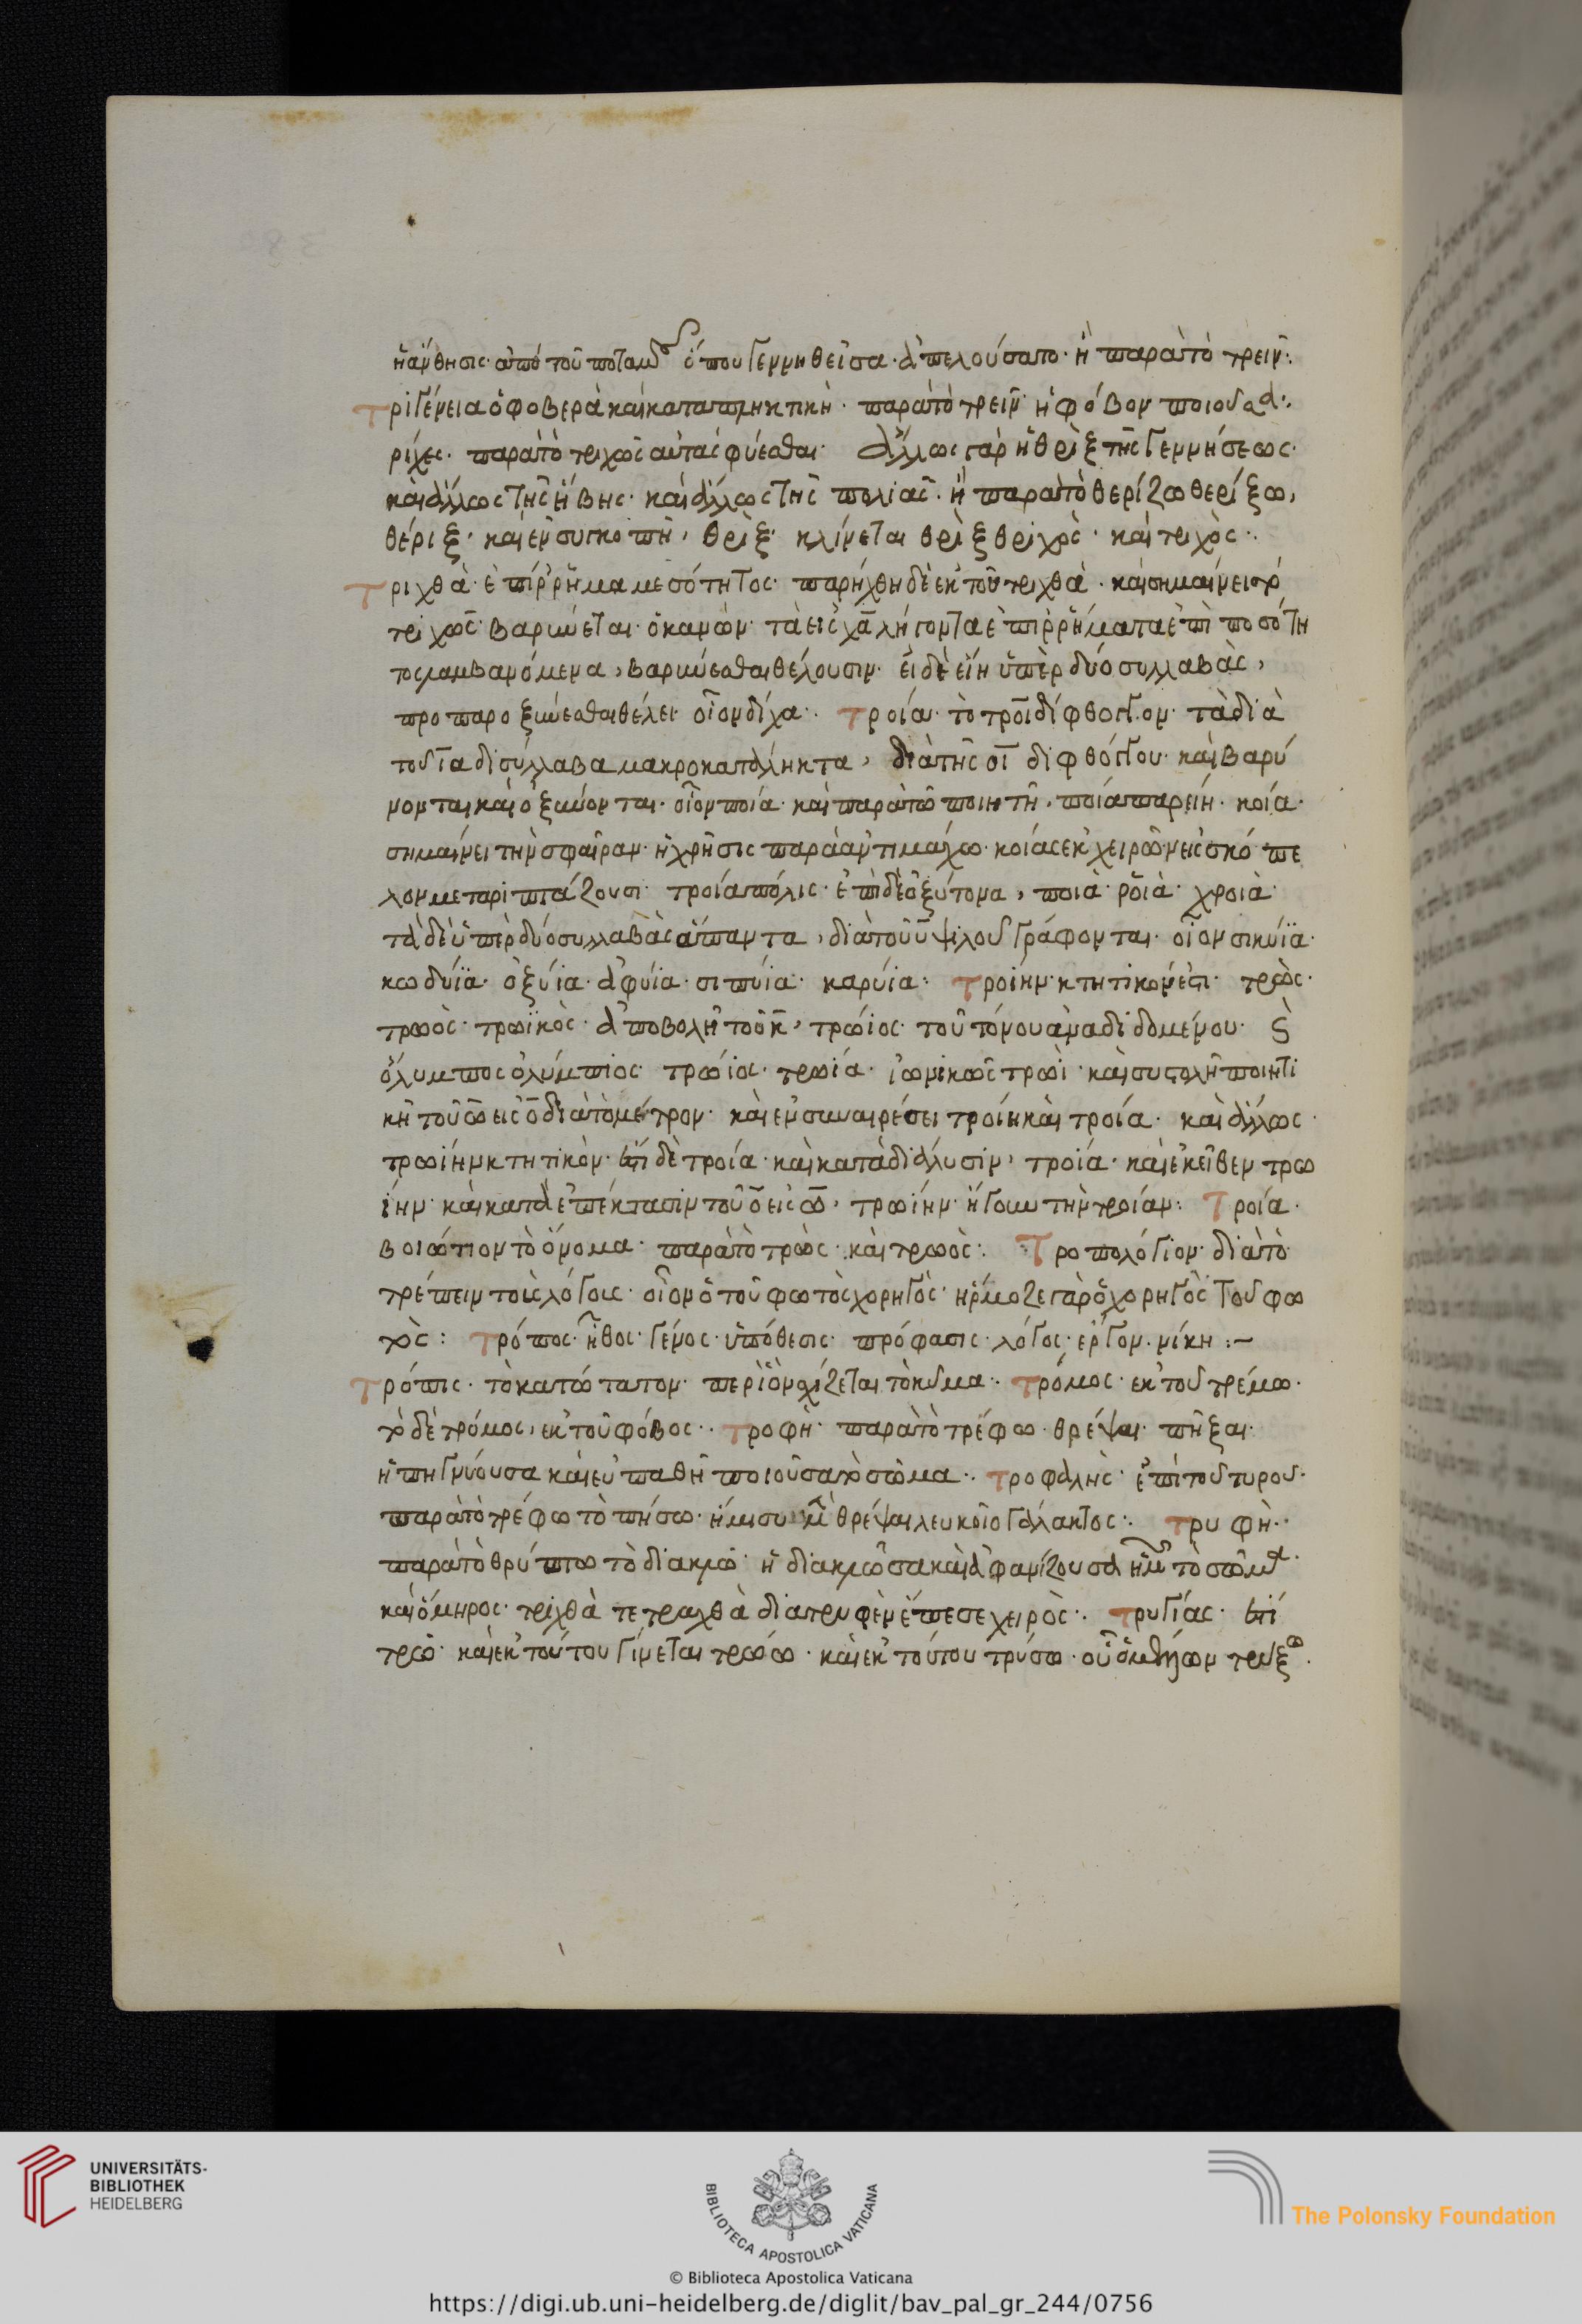 ἢ αὔθησις· ἀπὸ τοῦ ποταμοῦ ὅπου γεννηθεῖσα· ἀπελούσατο· ἢ παρὰ τὸ τρεῖν:
Τριγένεια ὁ φοβερὰ καὶ καταπληκτικὴ· παρὰ τὸ τρεῖν ἡ φόβον ποιοῦσα:
ρίχες· παρὰ τὸ τριχῶς αὐτὰς φύεσθαι· ἄλλως γὰρ ἡ θρὶξ τῆς γεννήσεως·
καὶ ἄλλως τῆς ἥβης· καὶ ἄλλως τῆς πολιᾶς· ἢ παρὰ τὸ θερίζω θερίξω,
θέριξ· καὶ ἐν συγκοπῆ, θρὶξ· κλίνεται θρὶξ θριχὸς· καὶ τριχὸς:
Τριχθὰ· ἐπίρρημα μεσότητος· παρήχθη δὲ ἐκ τοῦ τριχθὰ· καὶ σημαίνει τὸ
τριχῶς· βαρύνεται· ὁ κανὼν· τὰ εἰς χᾶ λήγοντα ἐπιρρήματα ἐπὶ ποσότη
τος λαμβανόμενα, βαρύνεσθαι θέλουσιν· εἰ δὲ εἴη ὑπὲρ δύο συλλαβὰς,
προπαροξύνεσθαι θέλει· οἷον δίχα: Τροία· τὸ τροῖ δίφθογγον· τὰ διὰ
τοῦ ια δισύλλαβα μακροκατάληκτα, διὰ τῆς οι διφθόγγου· καὶ βαρύ
νονται καὶ ὀξύνονται· οἷον ποία· καὶ παρὰ τῶ ποιητῆ, ποία παρείη· κοία·
σημαίνει τὴν σφαῖραν· ἡ χρῆσις παρὰ ἀντιμάχω· κοίας ἐκ χειρῶν εἰς σκόπε
λον μεταριπτάζουσι· τροία πόλις· ἐπὶ δὲ ὀξύτονα, ποιὰ· ροιὰ· χροιὰ·
τὰ δὲ ὑπὲρ δύο συλλαβὰς ἅπαντα, διὰ τοῦ υ ψιλοῦ γράφονται· οἷον σικύϊα·
κωδύϊα· ὀξύϊα· ἀφύϊα· σιπύϊα· καρύϊα: Τροίην· κτητικόν ἐστι· τρὼς·
τρωὸς· τρωϊκὸς· ἀποβολῆ τοῦ κ, τρώϊος· τοῦ τόνου ἀναδιδομένου· ὡς
ὄλυμπος ὀλύμπιος· τρώϊος· τρωία· ἰωνικῶς τρωὶ· καὶ συστολῆ ποιητι
κῆ τοῦ ω εἰς ο διὰ τὸ μέτρον· καὶ ἐν συναιρέσει τροίη καὶ τροία· καὶ ἄλλως·
τρωίην κτητικὸν· ἐπὶ δὲ τροία· καὶ κατὰ διάλυσιν, τροία· καὶ ἐκεῖθεν τρω
ίην· καὶ κατὰ ἐπέκτασιν τοῦ ο εἰς ω, τρωίην· ἤγουν τὴν τροίαν: Τροία·
βοιώτιον τὸ ὄνομα· παρὰ τὸ τρὼς· καὶ τρωὸς: Τροπολόγιον· διὰ τὸ
τρέπειν τοὺς λόγους· οἷον ὁ τοῦ φωτὸς χορηγὸς· ἥρμοζε γὰρ ὁ χορηγὸς τοῦ φω
τὸς: Τρόπος· ἦθος· γένος· ὑπόθεσις· πρόφασις· λόγος· ἔργον· νίκη:–
Τρόπις· τὸ κατώτατον· περὶ ὃ σχίζεται τὸ κῦμα: Τρόμος· ἐκ τοῦ τρέμω·
τὸ δὲ τρόμος, ἐκ τοῦ φόβος: Τροφὴ· παρὰ τὸ τρέφω· θρέψαι· πῆξαι·
ἡ πηγνύουσα καὶ εὐπαθῆ ποιοῦσα τὸ σῶμα: Τροφαλὴς· ἐπὶ τοῦ τυροῦ·
παρὰ τὸ τρέφω τὸ πήσω· ἥμισυ μὲν θρέψαι λευκοῖο γάλακτος: Τρυφὴ:
παρὰ τὸ θρύπτω τὸ διακινῶ· ἡ διακινῶσα καὶ ἀφανίζουσα ἡμῶν τὸ σῶμα·
καὶ ὅμηρος· τριχθὰ τε τραχθὰ διατρυφὲν ἔπεσε χειρὸς: Τρυγίας· ἐπὶ
τρῶ· καὶ ἐκ τούτου γίνεται τρώω· καὶ ἐκ τούτου τρύσω· οὗ ὁ μέλλων τρύξω·
UNIVERSITÄTS-
BIBLIOTHEK
HEIDELBERG
BIBLIOTECA APOSTOLICA VATICANA
The Polonsky Foundation
© Biblioteca Apostolica Vaticana
https://digi.ub.uni-heidelberg.de/diglit/bav_pal_gr_244/0756